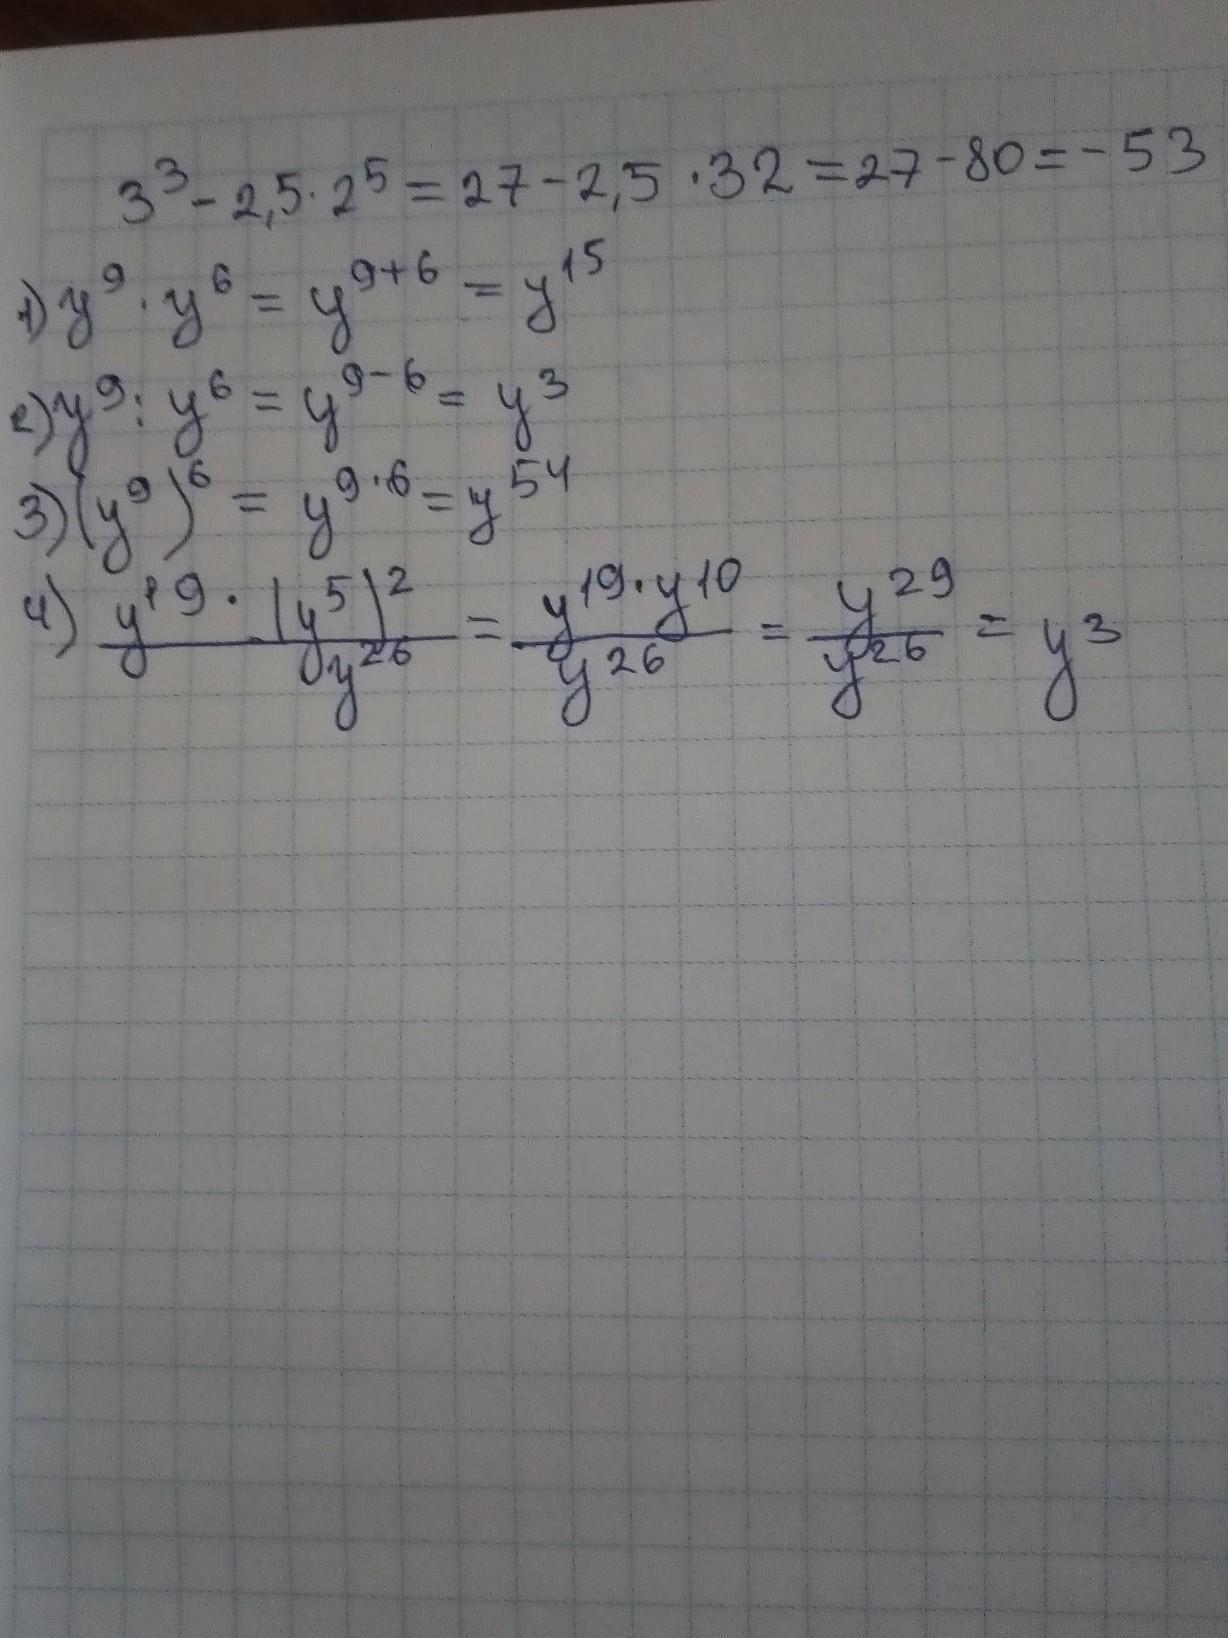 3³ - 2,5 · 2⁵ = 27 - 2,5 · 32 = 27 - 80 = - 53
1) y⁹ · y⁶ = y⁹⁺⁶ = y¹⁵
2) y⁹ : y⁶ = y⁹⁻⁶ = y³
3) (y⁹)⁶ = y^(9·6) = y⁵⁴
4) (y¹⁹ · (y⁵)²)/y²⁶ = (y¹⁹ · y¹⁰)/y²⁶ = y²⁹/y²⁶ = y³